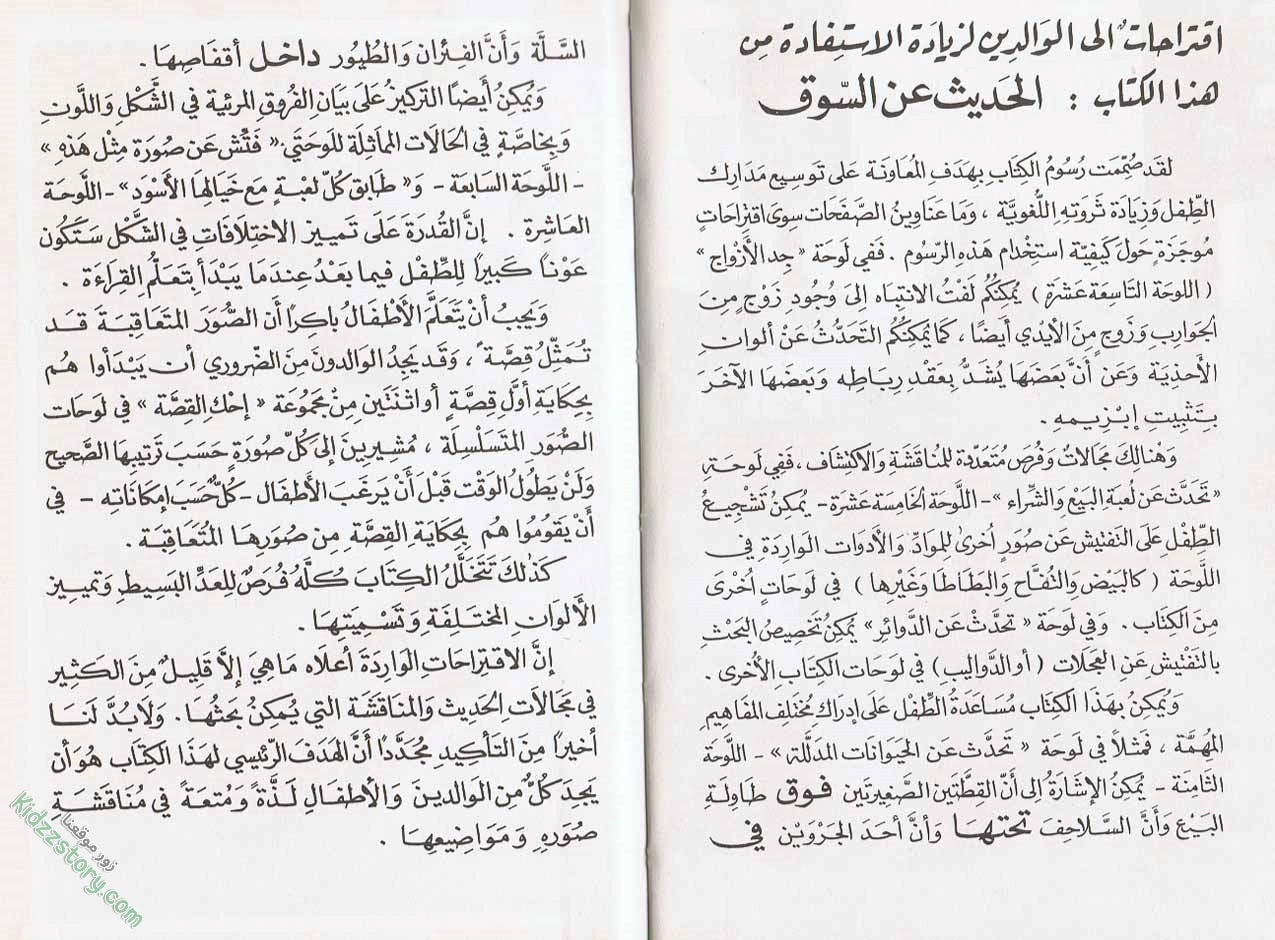 اقتراحاتٌ الى الوَالدِين لزيَادَة الاستِفادة مِن
هذا الكتاب : الحَديث عن السّوق
لقَد صُمِّمَت رُسُومُ الكِتَابِ بِهَدَفِ المُعَاوَنَة عَلى تَوسِيع مَدَارِك
الطِّفل وَزيَادَة ثَروَتهِ اللُّغويَّة ، وَمَا عَنَاوينُ الصَّفحَات سِوَى اقتِراحَاتٍ
مُوجَزَةٍ حَولَ كَيفيّة استِخدَام هَذه الرّسُوم . فَفي لَوحَة « جِد الأزْوَاج »
( اللَوحَة التَاسِعَة عَشرَة ) يُمكِنُكُم لَفْتُ الانتِبَاه إلىَ وُجُودِ زَوْجٍ مِنَ
الجَواربِ وَزَوجٍ مِنَ الأيْدي أيضًا ، كَمَا يُمكِنُكُم التَحَدُّثُ عَنْ ألوانِ
الأحذِيَة وَعَن أنَّ بَعضَهَا يُشَدُّ بِعَقْدِ رِبَاطِه وَبَعضَهَا الآخَرَ
بِتَثبِيتِ إبْزِيمهِ .
وَهُنالِكَ مَجَالاتٌ وَفُرَصٌ مُتَعَدّدَة للمُنَاقَشَةِ وَالاكتِشَاف ، فَفِي لَوحَةِ
« تَحَدَّث عَن لُعبَة البَيْع وَالشِّرَاء » - اللَّوحَة الخَامِسَة عَشرَة - يُمكِنُ تَشْجيعُ
الطِّفْلِ عَلى التَفتيش عَن صُوَرٍ أخرَى للمَوادِّ وَالأدَوات الوَاردَة في
اللَّوحَة ( كالبَيْضِ وَالتُفَّاح وَالبَطَاطَا وَغَيْرِها ) في لَوحَاتٍ أُخْرَى
مِنَ الكِتَاب . وَفي لَوحَة « تحدَّثْ عَن الدَوائر » يُمكِنُ تَخصِيصُ البَحْثِ
بالتَفْتيش عَنِ العَجَلات ( أو الدَّوَاليب ) في لَوحَات الكِتَابِ الأُخرى .
وَيُمكِنُ بِهَذَا الكِتَاب مُسَاعَدَةُ الطِّفْل عَلى إدرَاكِ مُختَلِف المَفَاهِيم
المُهمَّة ، فَمَثلاً في لَوحَة « تَحدَّث عَن الحَيَوانَات المدَلَّلَة » - اللَّوحَة
الثَامنَة - يُمكِنُ الإشَارَةُ إلى أنّ القِطَّتَين الصَّغِيرتَين فوق طَاوِلَةِ
البَيْع وَأنَّ السَّلاحِفَ تحتها وَأنَّ أحَدَ الجَرْوَيْن في
السَّلَّة وَأنَّ الفِئرَان وَالطُيُور داخل أقفَاصِهَا .
وَيُمكِنُ أيضًا التَركيزُ عَلى بَيَان الفُروق المَرئيَة في الشَّكْلِ وَاللَّونِ
وَبِخَاصَّةٍ في الحَالات المماثِلَة للَوحَتَي « فَتِّش عَن صُورَة مِثْل هَذهِ »
- اللَّوحَة السَابعَة - وَ« طَابِق كُلّ لعبَةٍ مَع خَيَالِهَا الأسْوَد » - اللَّوحَة
العَاشِرَة . إنَّ القُدرَة عَلَى تَمييز الاختِلافَاتِ في الشَكْل سَتَكُون
عَوْنًا كَبيرًا لِلطِّفْل فيمَا بَعْدُ عِندَمَا يَبْدَأ بِتَعلُّم القِرَاءَة .
وَيَجِبُ أنْ يَتَعَلَّمَ الأطْفَالُ بَاكِرًا أن الصُّوَرَ المتَعَاقِبَة قَد
تُمَثِّلُ قِصَّةً ، وَقَد يَجِدُ الوَالدونَ مِنَ الضَّروري أن يَبْدَأوا هُم
بِحِكايَةِ أوَّلِ قِصَّةٍ أو اثْنَتَين مِنْ مَجمُوعَة « إحْكِ القِصَّة » في لَوحَات
الصُّوَر المُتَسَلسِلَة ، مُشيرينَ إلى كُلّ صُورَةٍ حَسَبَ تَرتيبهَا الصَّحيح
وَلَنْ يَطُولَ الوَقت قَبْلَ أنْ يَرغَبَ الأطفَال - كُلٌّ حَسَبَ إمكَانَاتِه - في
أنْ يَقُومُوا هُم بِحِكَايَةِ القِصَّةِ مِن صُوَرِهَا المُتَعَاقِبَة .
كَذَلكَ تَتَخَلَّلُ الكِتَابَ كُلَّهُ فُرَصٌ للعَدِّ البَسيط وَتَمييز
الألْوَانِ المختَلِفَة وَتَسْمِيَتِهَا .
إنَّ الاقتِرَاحَات الوَاردَة أعلاه مَا هِيَ إلاَّ قَليلٌ مِنَ الكَثِير
في مَجَالاتِ الحَديث وَالمنَاقَشَة التي يُمكِنُ بَحثُهَا . وَلابُدَّ لَنَا
أخيرًا مِنَ التَأكيدِ مُجَدَّدًا أنَّ الهَدَفَ الرَّئيسي لهَذَا الكِتَابِ هُوَ أن
يَجِدَ كُلٌّ مِنَ الوَالدينَ وَالأطفَالِ لَذَّةً وَمُتعَةً في مُنَاقَشَةِ
صُوَرِهِ وَمَوَاضِيعِهَا .
زور موقعنا
Kidzzstory.com